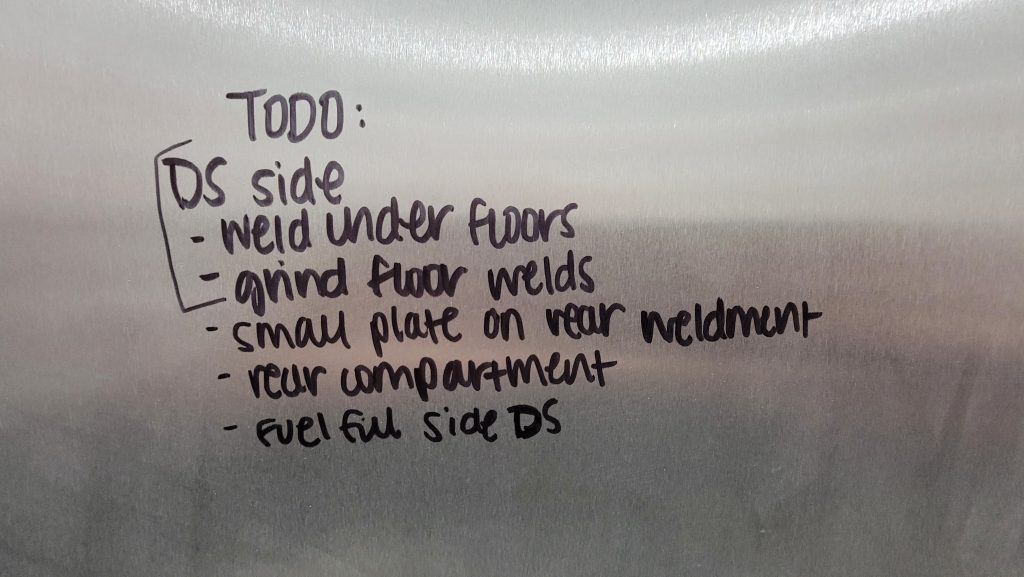 TODO:
DS side
- weld under floors
- grind floor welds
- small plate on rear weldment
- rear compartment
- fuel fill side DS